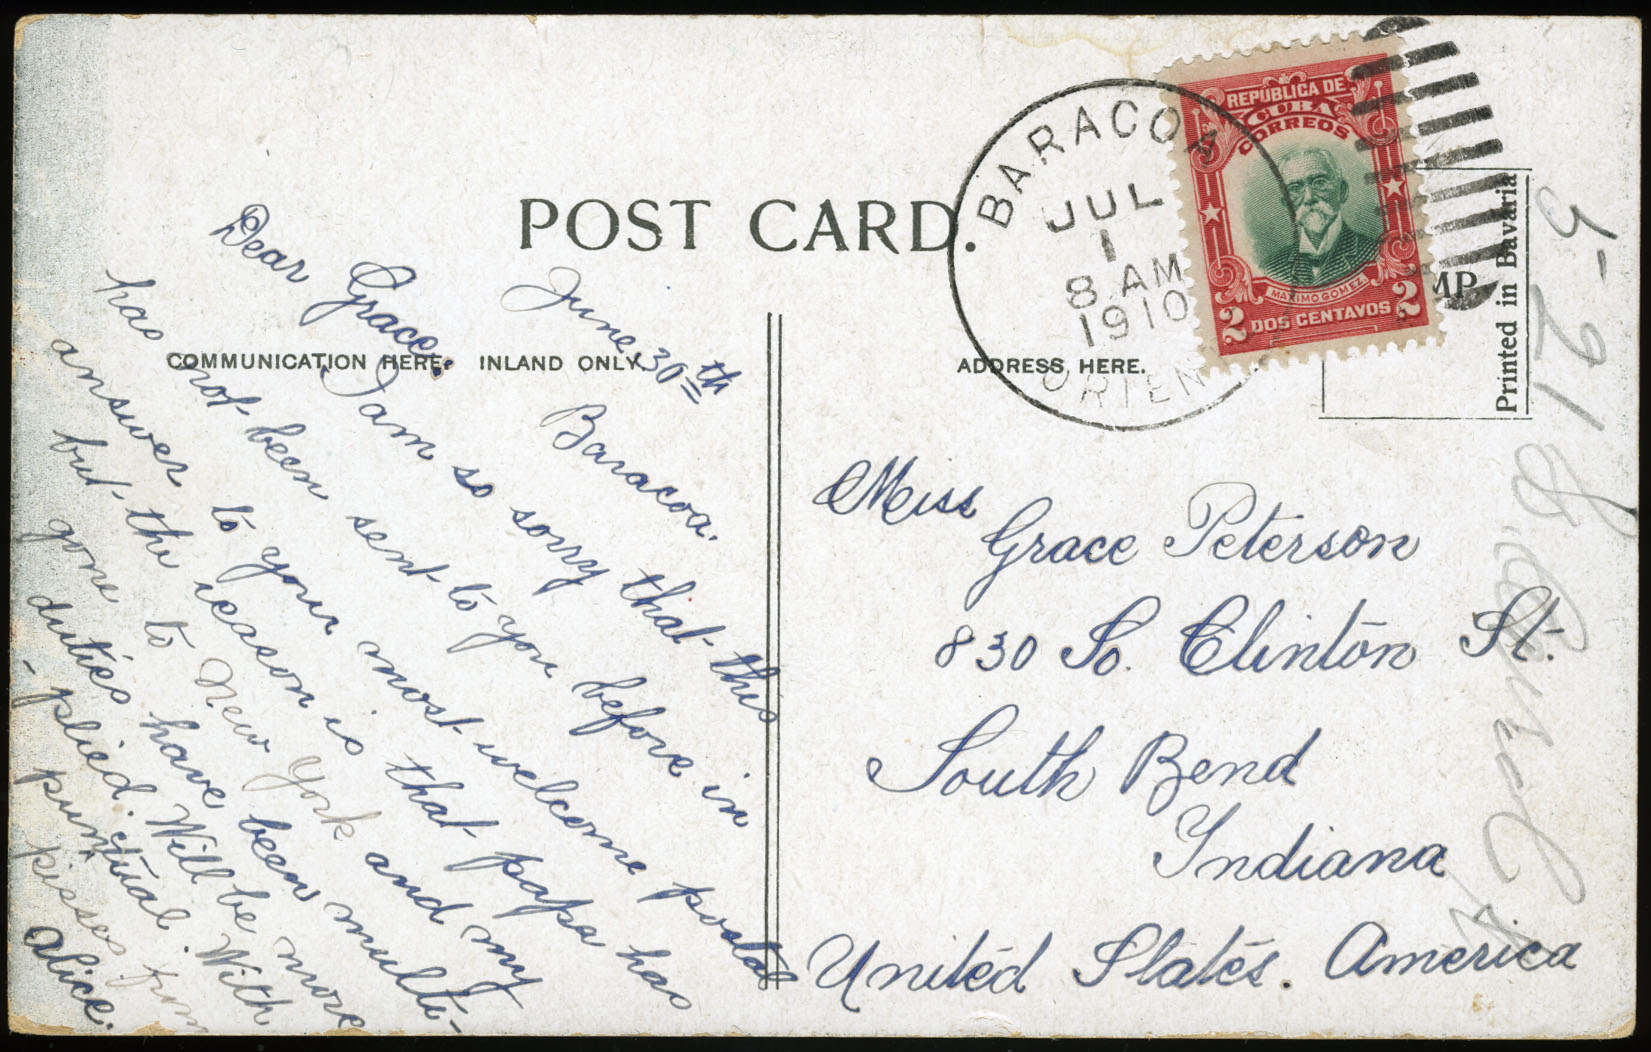 POST CARD.
BARACOA
JUL
1
8 AM
1910
ORIEN
REPUBLICA DE
CUBA
CORREOS
MAXIMO GOMEZ
2 DOS CENTAVOS 2
MP
Printed in Bavaria
COMMUNICATION HERE. INLAND ONLY.
ADDRESS HERE.
June, 30th
Baracoa.
Dear Grace:
I am so sorry that this
has not been sent to you before in
answer to your most welcome postal
but the reason is that papa has
gone to New York and my
duties have been multi-
-plied. Will be more
punctual. With
kisses from
Alice.
Miss
Grace Peterson
830 So. Clinton St.
South Bend
Indiana
United States. America
5-218